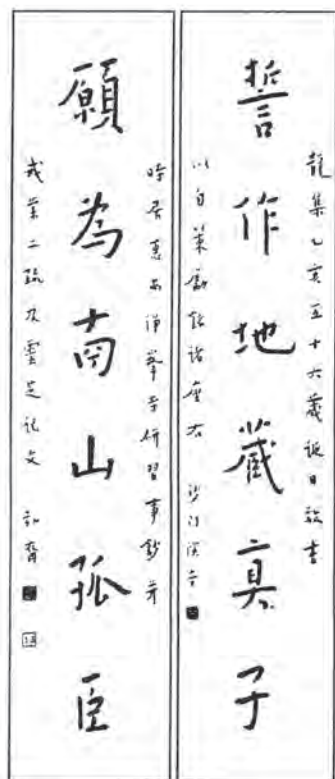 誓作地藏真子
龍集乙亥五十六歲誕日敬書
以自策勵 諸座右 沙門演音
願為南山孤臣
時居惠安淨峯寺研習事鈔并
戒業二疏及靈芝記文 弘裔